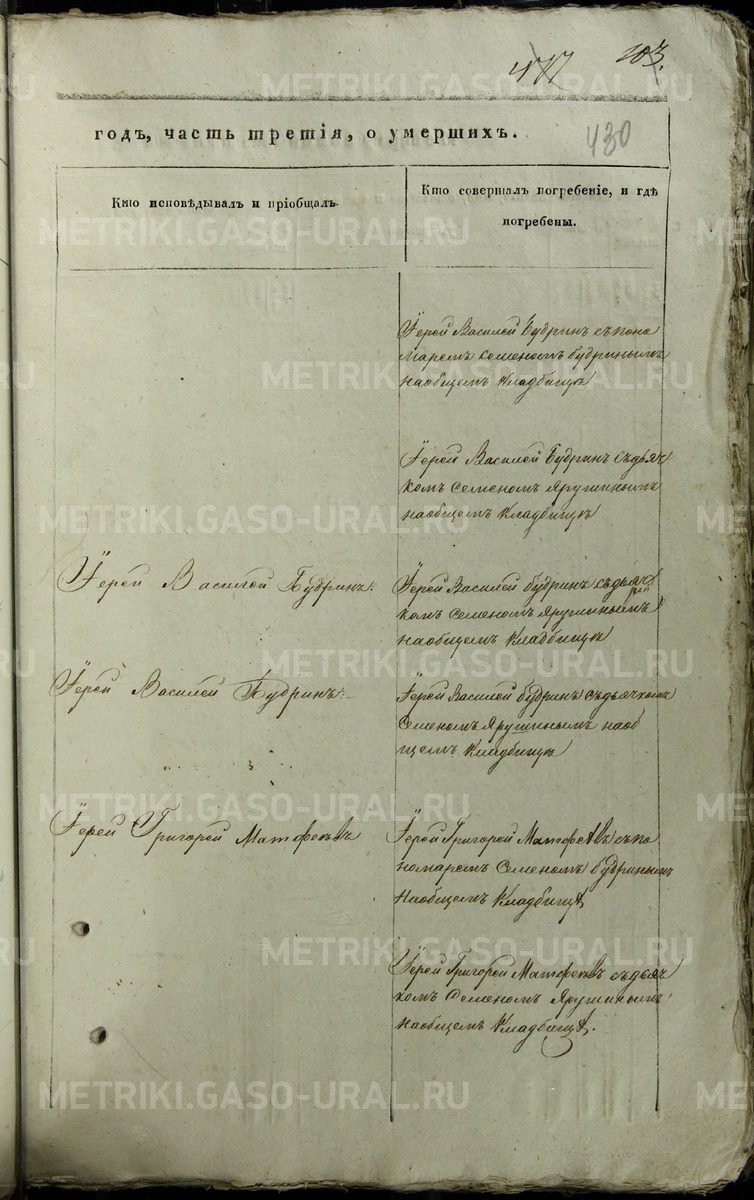 417
203.
430
годъ, часть третія, о умершихъ.
Кто исповѣдывалъ и пріобщалъ.
Кто совершалъ погребеніе, и гдѣ
погребены.
Їерей Василей Будринъ съ поно
маремъ Семеномъ будринымъ
на общемъ Кладбищѣ
Їерей Василей Будринъ съ дьяч
комъ Семеномъ Ярушинымъ
на общемъ Кладбищѣ
Їерей Василей Будринъ.
Їерей Василей будринъ съ дьяч
комъ Семеномъ Ярушинымъ
на общемъ Кладбищѣ
Їерей Василей Будринъ.
Їерей Василей будринъ съ дьячкомъ
Семеномъ Ярушинымъ на об
щемъ Кладбищѣ
Їерей Григорей Матфеевъ
Їерей Григорей Матфеевъ съ по
номаремъ Семеномъ будринымъ
на общемъ Кладбищѣ
Їерей Григорей Матфеевъ съ дьяч
комъ Семеномъ Ярушинымъ
на общемъ Кладбищѣ.
METRIKI.GASO-URAL.RU